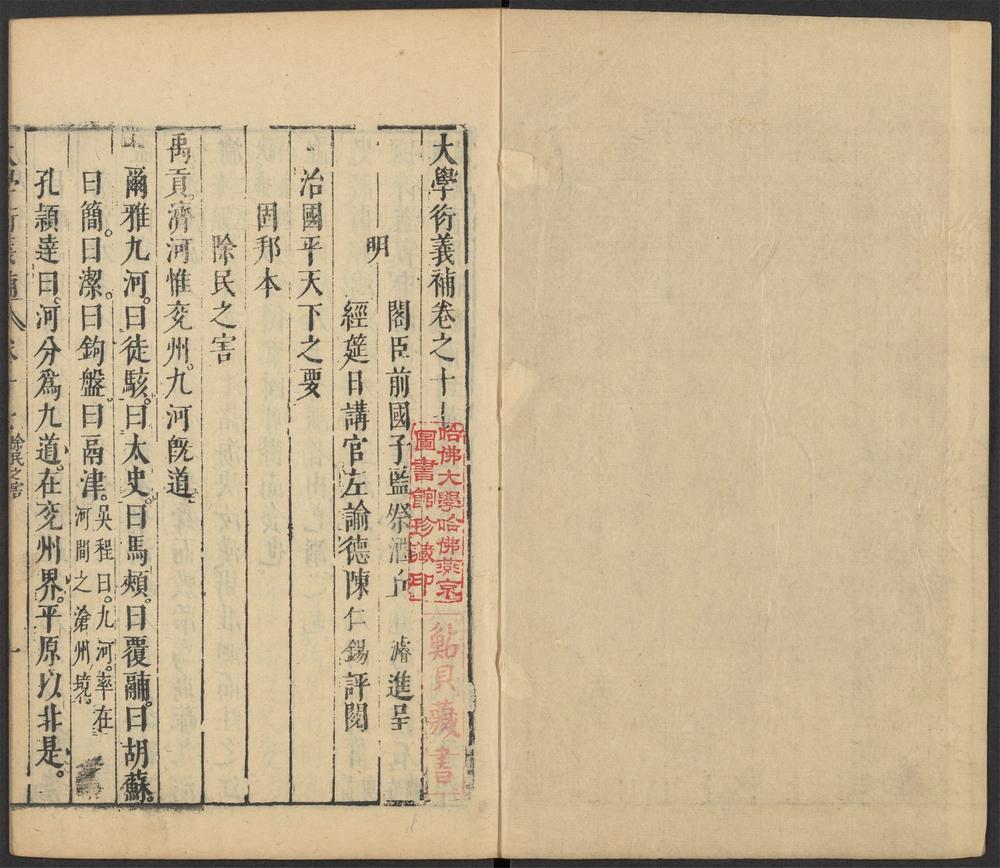 大學衍義補卷之十七
明
閣臣前國子監祭酒丘濬進呈
經筵日講官左諭德陳仁錫評閱
治國平天下之要
固邦本
除民之害
禹貢。濟河惟兗州。九河旣道
爾雅九河。曰徒駭。曰太史。曰馬頰。曰覆鬴。曰胡蘇。
曰簡。曰潔。曰鉤盤。曰鬲津。吳程曰。九河。率在河間之滄州境。
孔穎達曰。河分爲九道。在兗州界。平原以北是。
大學衍義補 除民之害 一
哈佛大學哈佛燕京
圖書館珍藏印
貝藏書